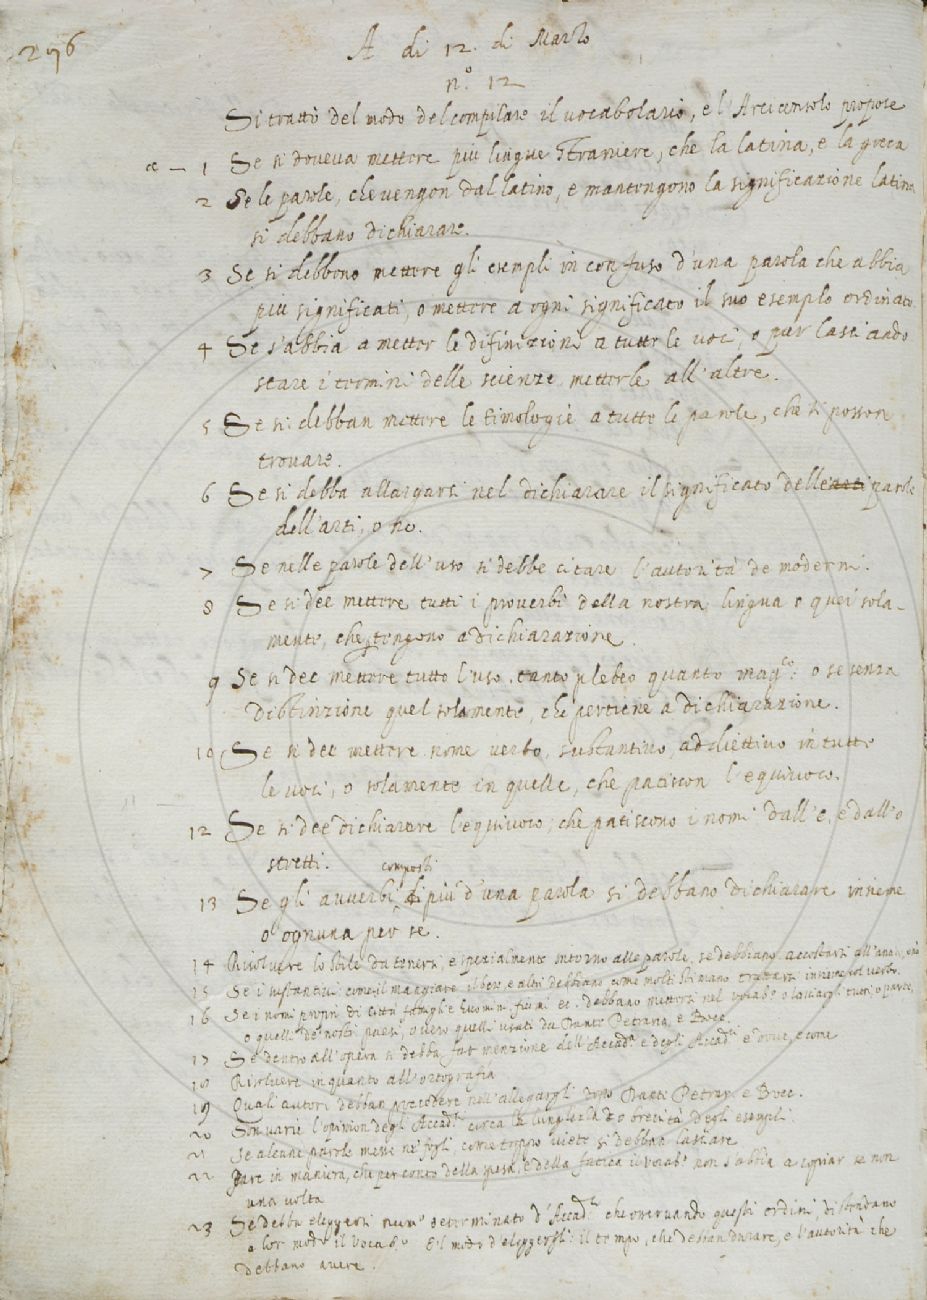 276
A di 12. di Marzo
n.º 12
Si trattò del modo del compilare il vocabolario, e l'Arciconsolo propose
a — 1 Se si doveva mettere più lingue straniere, che la latina, e la greca
2 Se le parole, che vengon dal latino, e mantengono la significazione latina
si debbano dichiarare.
3 Se si debbono mettere gli esempli in confuso d'una parola che abbia
più significati, o mettere a ogni significato il suo esemplo ordinato.
4 Se s'abbia a metter le difinizioni a tutte le voci, o pur lasciando
stare i termini delle scienze metterle all'altre.
5 Se si debban mettere le Etimologie a tutte le parole, che si posson
trovare.
6 Se si debba allargarsi nel dichiarare il significato delle arti parole
dell'arti, o no.
7 Se nelle parole dell'uso si debbe citare l'autorità de moderni.
8 Se si dee mettere tutti i proverbi della nostra lingua o quei sola-
mente, che tengono a dichiarazione.
9 Se si dee mettere tutto l'uso, tanto plebeo quanto mag.co: o se senza
distinzione quel solamente, che pertiene a dichiarazione.
10 Se si dee mettere nome verbo, sustantivo, addiettivo in tutte
le voci, o solamente in quelle, che patiscon l'equivoco.
12 Se si dee dichiarare l'equivoco, che patiscono i nomi dall'e, e dall'o
stretti.
composti
13 Se gli avverbi di più d'una parola si debbano dichiarare insieme
o ognuna per se.
14 Risolvere lo stile da tenersi, e spezialmente intorno alle parole, se debbiano accostarsi all'
15 Se i sustantivi come il mangiare il bere, e altri debbano come molti stimano trattarsi insieme col verbo.
16 Se i nomi propri di città famiglie huomini fiumi ec. debbano mettersi nel vocab.o o lasciargli tutti, o parte,
o quelli de' nostri paesi, o vero quelli usati da Dante Petrarca, e Bocc.
17 Se dentro all'opera si debba far menzione dell'Accad.a e degli Accad.ci e dove, e come
18 Risolvere in quanto all'ortografia
19 Quali autori debban precedere nell'allegargli dopo Dante Petrar. e Bocc.
20 Son varie l'opinion degli Accad.ci circa la lunghezza o brevità degli esempli.
21 Se alcune parole messe ne' fogli, come troppo viete si debban lasciare
22 Fare in maniera, che per conto della spesa, e della fatica il vocab.o non s'abbia a copiar se non
una volta
23 Se debba eleggersi num.o determinato d'Accad.ci che osservando questi ordini, distendano
a lor modo il vocab.o E il modo d'eleggergli: il tempo, che debban durare, e l'autorità che
debbano avere.